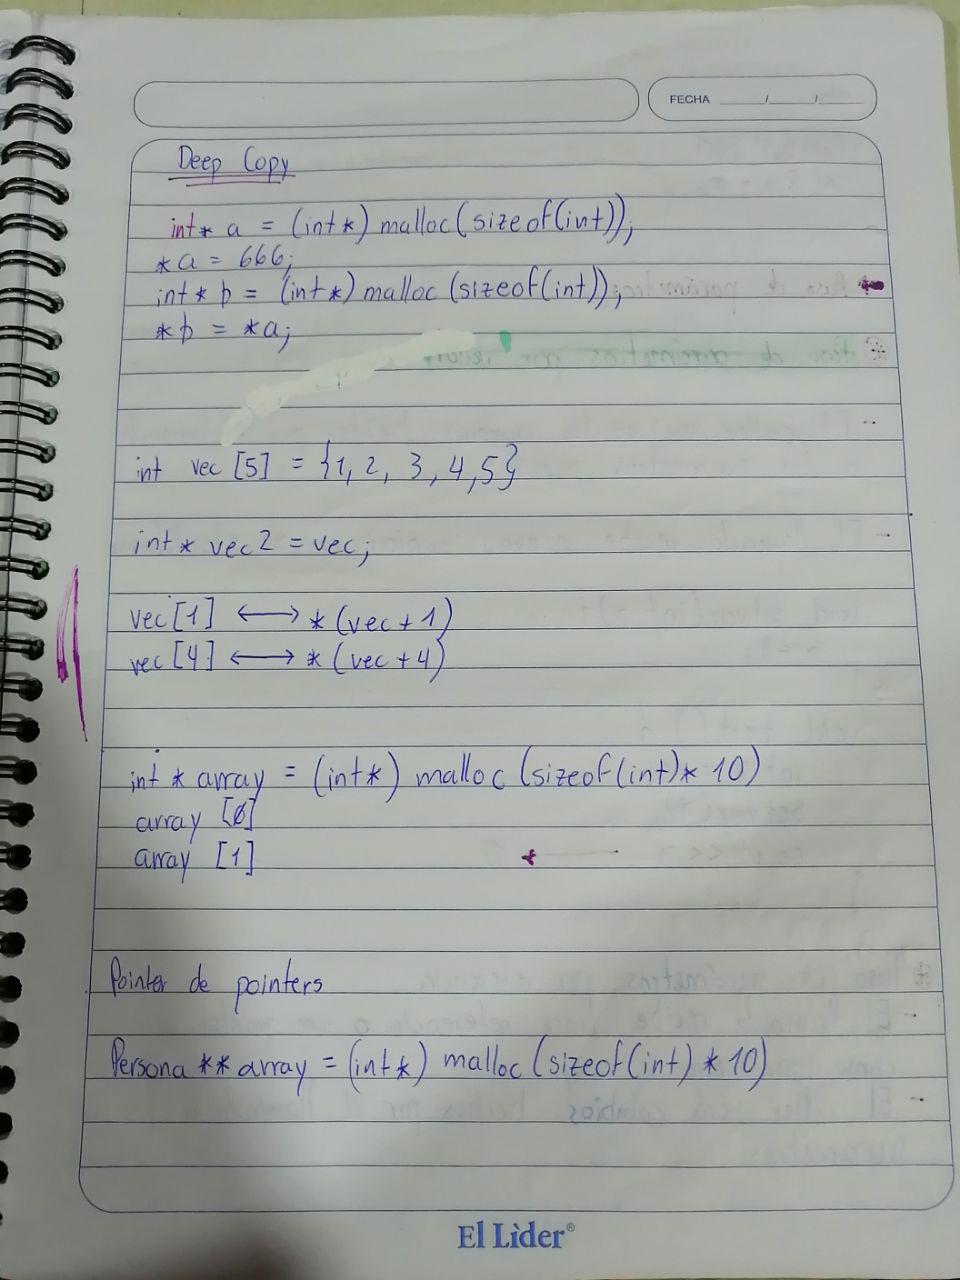 FECHA ____/____/____
Deep Copy
int* a = (int*) malloc(sizeof(int));
*a = 666;
int* b = (int*) malloc (sizeof(int));
*b = *a;
int vec [5] = {1, 2, 3, 4, 5}
int * vec2 = vec;
vec [1] ⟷ * (vec + 1)
vec [4] ⟷ * (vec + 4)
int * array = (int*) malloc (sizeof(int) * 10)
array [0]
array [1]
Pointer de pointers
Persona ** array = (int*) malloc (sizeof(int) * 10)
El Lìder®